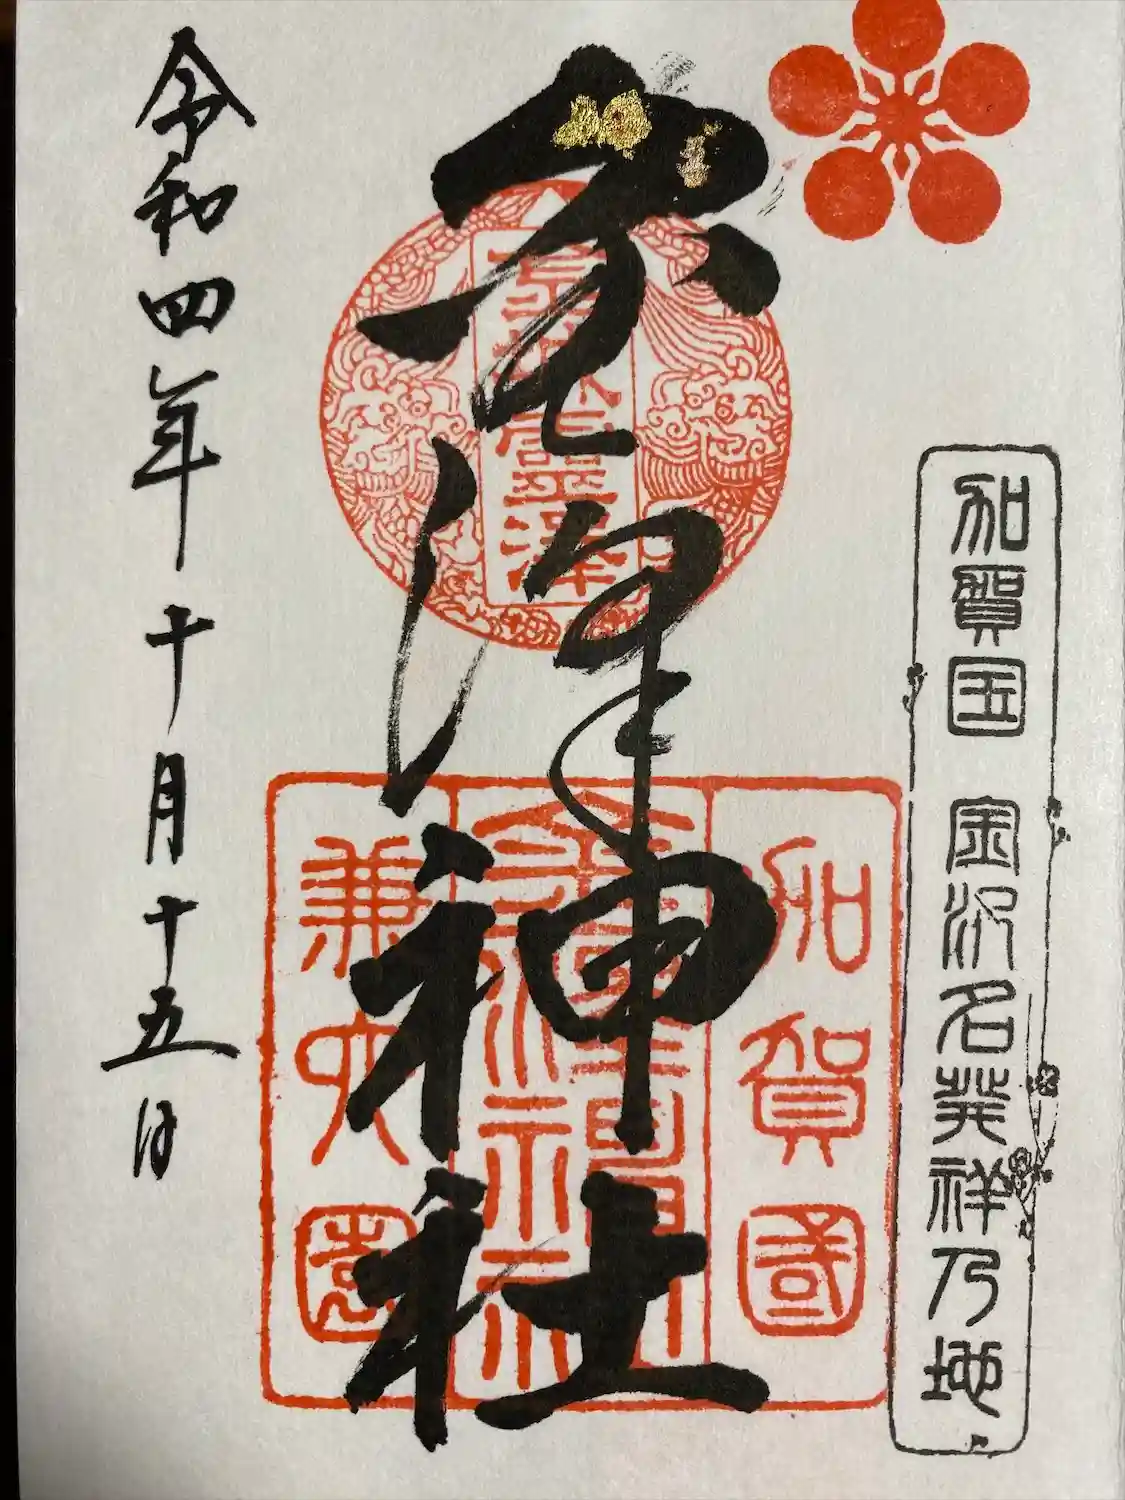 加賀国 金沢名発祥乃地
金澤神社
金城靈澤
加賀國
金澤神社
兼六園
令和四年十月十五日